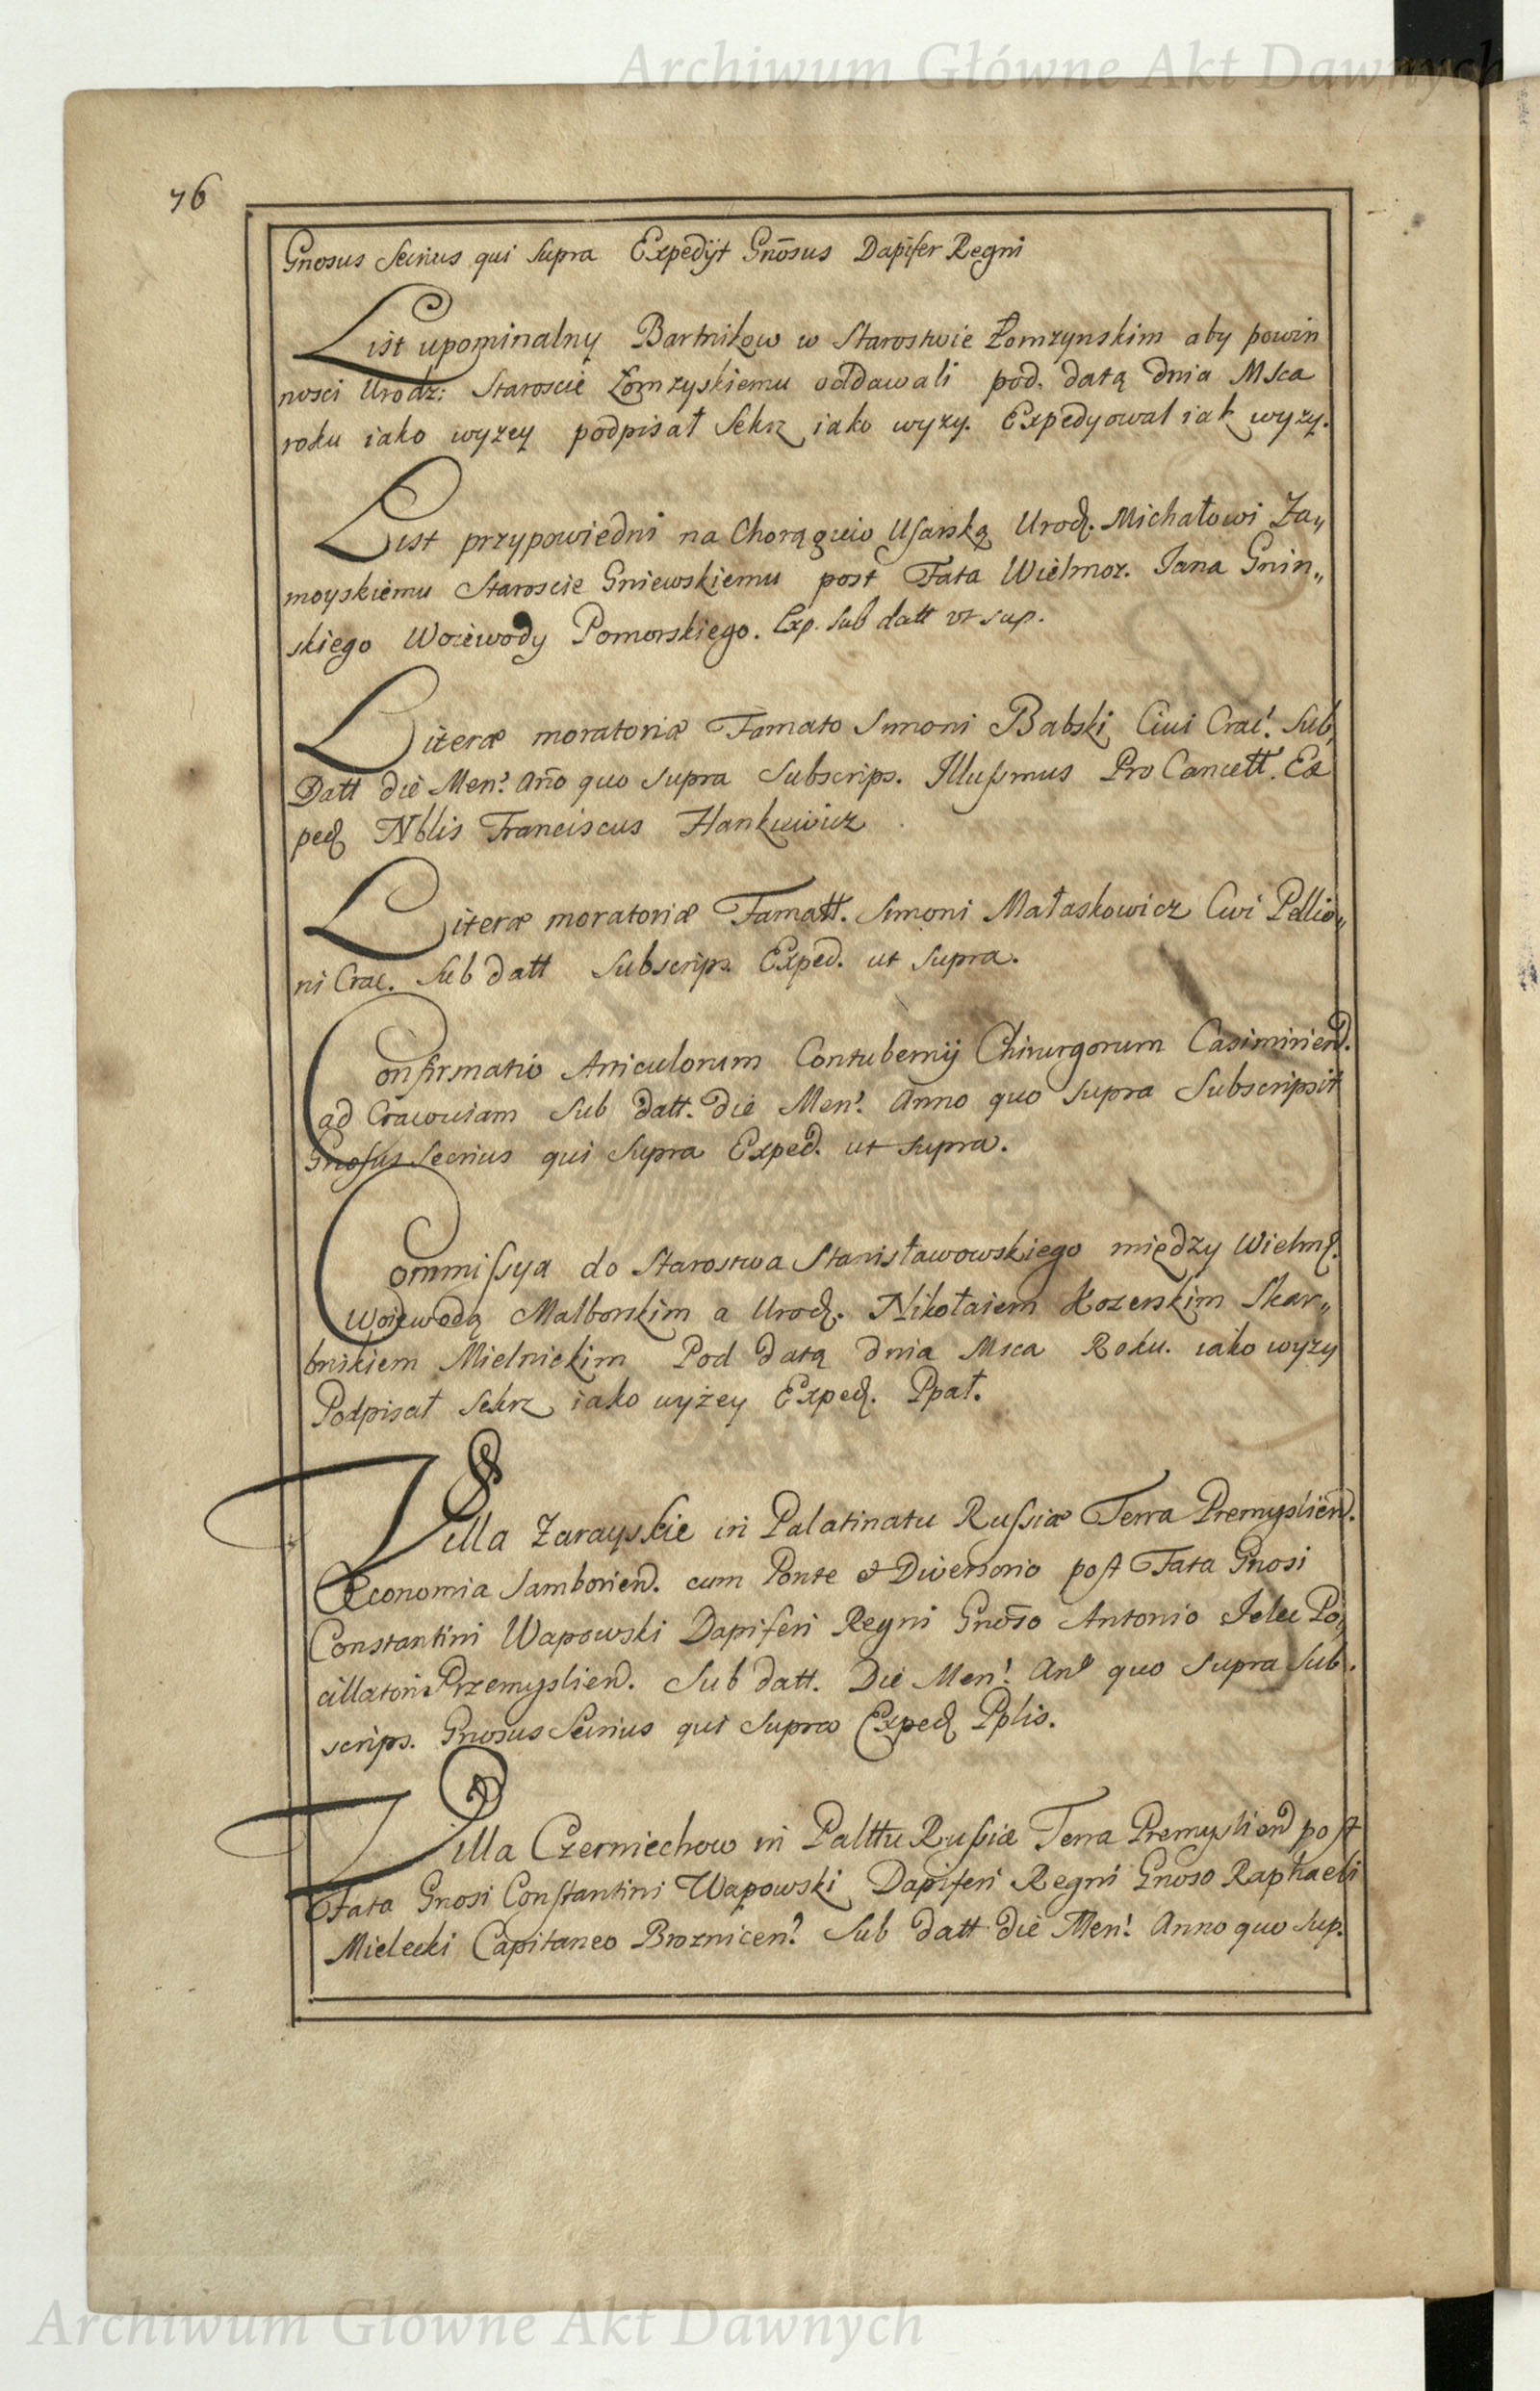 Archiwum Główne Akt Dawnych
76
Gnosus Secrius qui supra Expedijt Gnosus Dapifer Regni
List upominalny Bartnikow w Starostwie Łomzynskim aby powin
nosci Urodz: Staroscie Łomzyskiemu oddawali pod. datą dnia Msca
roku iako wyzey podpisał Sekrz iako wyzy. Expedyował iak wyzy.
List przypowiedni na Chorągwio Usarską Urod. Michałowi Za„
moyskiemu Staroscie Gniewskiemu post Fata Wielmoz. Jana Gnin„
skiego Woiewody Pomorskiego. Exp. sub datt vt sup.
Literæ moratoriæ Famato Simoni Babski Ciui Crac. Sub
Datt die Men. Año quo supra Subscrips. Illussmus Pro Cancell. Ex
ped Nblis Franciscus Hankiewicz
Literæ moratoriæ Famatt. Simoni Małaskowicz Civi Pellio„
ni Crac. Sub datt Subscrips. Exped. ut supra.
Confirmatio Articulorum Contubernij Chirurgorum Casimirien̄d.
ad Cracouiam Sub datt. die Men. Anno quo supra Subscripsit
Gnosus Secrius qui supra Exped. ut supra.
Commissya do Starostwa Stanisławowskiego między Wielmż.
Woiewodą Malborskim a Urod. Nikołaiem Kozerskim Skar„
bnikiem Mielnickim Pod datą dnia Msca Roku. iako wyzy
Podpisał Sekrz iako wyżey Exped. Ppał.
Villa Zarayskie in Palatinatu Russiæ Terra Premyslień̄d.
Œconomia Samborien̄d. cum Ponte et Diversorio post Fata Gnosi
Constantini Wapowski Dapiferi Regni Gnōso Antonio Jelec Po„
cillatori Przemyslien̄d. Sub datt. Die Men. Ano quo supra Sub.
scrips. Gnosus Secrius qui supra Exped Pplis.
Villa Czerniechow in Palttu Russiæ Terra Premyslien̄d post
Fata Gnosi Constantini Wapowski Dapiferi Regni Gnoso Raphaeli
Mielecki Capitaneo Broznicen. Sub datt die Men. Anno quo sup.
Archiwum Główne Akt Dawnych